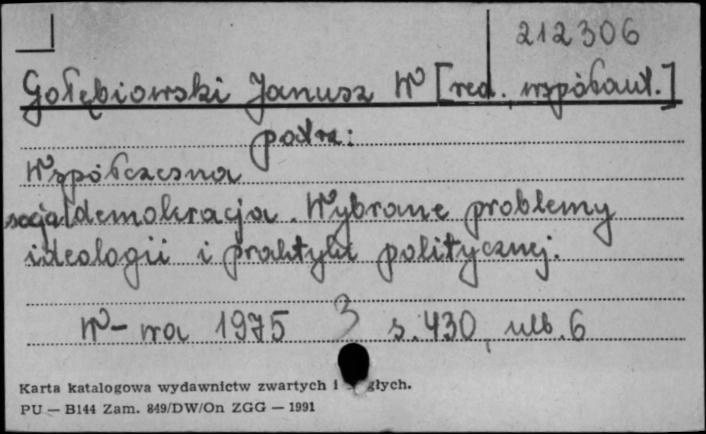 212306
Gołębiowski Janusz W [red., współaut.]
patrz:
Współczesna
socjaldemokracja. Wybrane problemy
ideologii i praktyki politycznej.
W-wa 1975 3 s. 430, nlb. 6
Karta katalogowa wydawnictw zwartych i głych.
PU — B144 Zam. 849/DW/On ZGG — 1991